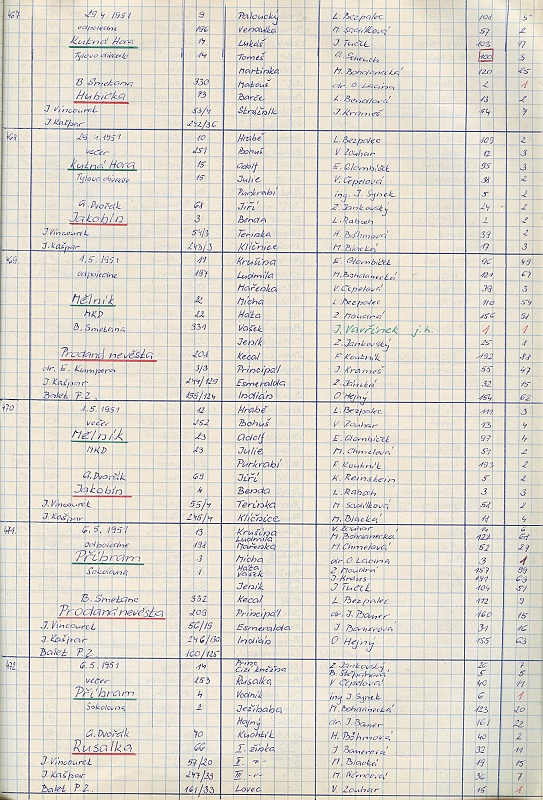 467 29.4.1951 9 Paloucký L. Bezpalec 108 5
odpoledne 196 Vendulka M. Sadílková 57 2
Kutná Hora 14 Lukáš J. Tučík 103 17
Tylovo divadlo 14 Tomeš 100 3
Martinka M. Bohdanecká 120 25
B. Smetana 330 Matouš dr. O. Lacina 2 1
Hubička 13 Barče L. Bendlová 13 2
J. Vincourek 53/4 Strážník J. Krameš 54 7
J. Kašpar 242/36
468 29.4.1951 10 Hrabě L. Bezpalec 109 2
večer 251 Bohuš V. Zouhar 12 3
Kutná Hora 15 Adolf E. Olombíček 95 3
Tylovo divadlo 15 Julie V. Čepelová 38 2
Purkrabí ing. J. Synek 5 2
A. Dvořák 68 Jiří Z. Jankovský 24 2
Jakobín 3 Benda L. Raboch 2 2
J. Vincourek 54/3 Terinka H. Böhmová 39 2
J. Kašpar 243/3 Klíčnice M. Blacká 17 3
469 1.5.1951 11 Krušina E. Olombíček 96 49
odpoledne 197 Ludmila M. Bohdanecká 121 67
Mařenka V. Čepelová 39 3
Mělník 22 Mícha L. Bezpalec 110 54
MKD 22 Háta Z. Moudrá 156 58
B. Smetana 331 Vašek J. Vavřínek j.h. 1 1
Jeník Z. Jankovský 25 1
Prodaná nevěsta 208 Kecal F. Koutník 192 38
dr. E. Kumpera 3/3 Principál J. Krameš 55 47
J. Kašpar 244/129 Esmeralda Z. Jánská 32 15
Balet P.Z. 155/124 Indián O. Hejný 154 62
470 1.5.1951 12 Hrabě L. Bezpalec 111 3
večer 252 Bohuš V. Zouhar 13 4
Mělník 23 Adolf E. Olombíček 97 4
MKD 23 Julie M. Chmelová 51 2
Purkrabí F. Koutník 193 2
A. Dvořák 69 Jiří K. Remstein 5 2
Jakobín 4 Benda L. Raboch 3 3
J. Vincourek 55/4 Terinka M. Sadílková 58 2
J. Kašpar 245/4 Klíčnice M. Blacká 18 4
471 6.5.1951 13 Krušina V. Zouhar 14 6
Ludmila M. Bohdanecká 122 68
odpoledne 198 Mařenka M. Chmelová 52 27
Příbram 3 Mícha dr. O. Lacina 3 1
Sokolovna 1 Háta Z. Moudrá 157 59
Vašek J. Kraus 191 63
Jeník J. Tučík 104 51
B. Smetana 332 Kecal L. Bezpalec 112 9
Prodaná nevěsta 209 Principál dr. J. Baner 160 15
J. Vincourek 56/19 Esmeralda J. Banerová 31 16
J. Kašpar 246/130 Indián O. Hejný 155 63
Balet P.Z. 160/125
472 6.5.1951 14 Princ Z. Jankovský 26 7
Cizí kněžna B. Štěpánová 5 5
večer 253 Rusalka V. Čepelová 40 11
Příbram 4 Vodník ing. J. Synek 6 1
Sokolovna 2 Ježibaba M. Bohdanecká 123 20
Hajný dr. J. Baner 161 22
A. Dvořák 70 Kuchtík H. Böhmová 40 2
Rusalka 66 I. žínka J. Banerová 32 11
J. Vincourek 57/20 II. -"- M. Blacká 19 15
J. Kašpar 247/39 III. -"- M. Němcová 36 7
Balet P.Z. 161/33 Lovec V. Zouhar 15 1